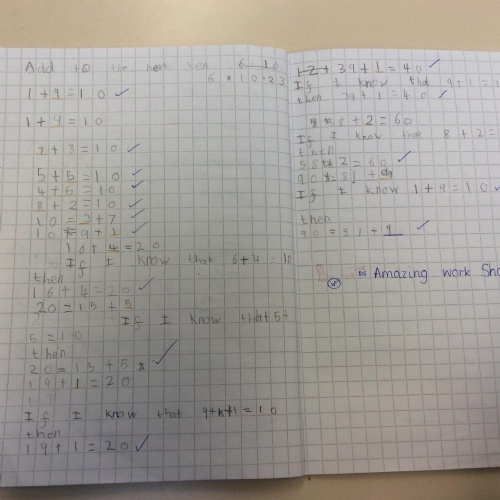 Add to the next
6 10
6.10.23
1+9=10
1+9=10
7+3=10
5+5=10
4+6=10
8+2=10
10=3+7
10=9+1
16+4=20
If I know that 6+4=10
then
16+4=20
20=15+5
If I know that 5+
5=10
then
20=15+5
19+1=20
If I know that
then
19+1=20
39+1=40
If I know that 9+1=1
then 39+1=40
58+2=60
If I know that 8+2=
then
58+2=60
90=81+9
If I know 1+9=10
then
90=81+9
Amazing work